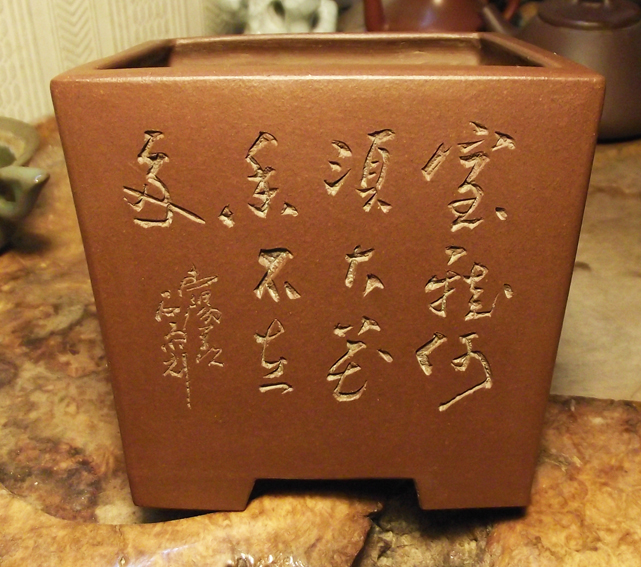 室雅何
須大花
香不在
多